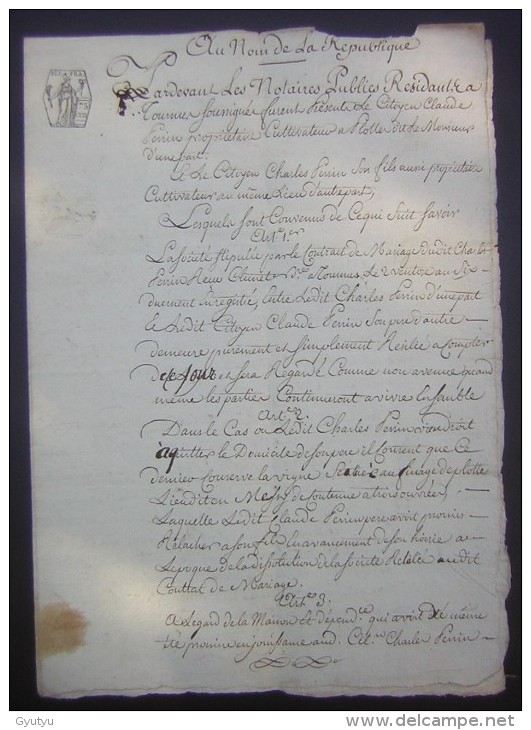 Au Nom de La Republique
Pardevant Les Notaires Publics Residants a
REP. FRA.
Tournus soussignés furent Présents Le Citoyen Claude
Perrin propriétaire Cultivateur a Plottes dit Le Monsieur
d'une part.
Et Le Citoyen Charles Perrin Son fils aussi propriétaire
Cultivateur au même Lieu d'autre part,
Lesquels sont Convenus de Ce qui Suit Savoir
Art.e 1.er
La société stipulée par le Contrat de Mariage dudit Charles
Perrin Reçu N.re a Tournus, Le Ventose an Six
duement inregistré, Entre Ledit Charles Perrin d'une part
et Ledit Citoyen Claude Perrin Son pere d'autre
demeure purement et simplement Resiliée a Compter
de Ce jour et sera Regardé Comme non avenue quand
même les parties Continueront a vivre Ensemble
Art.e 2.
Dans le Cas ou Ledit Charles Perrin viendroit
a quitter le Domicile de Son pere il Convient que Ce
dernier Conserve la vigne Située au finage de plotte
Lieudit en de Contenue a tiers ouvrées,
Laquelle Ledit Claude Perrin pere avoit promis
Relacher a son fils En avancement de Son hoirie a
L'epoque de la dissolution de la société Resiliée audit
Contrat de Mariage.
Art.e 3.
A L'egard de la Maison Et dépend.ces qui avoit Eté même
été promise en jouissance aud. Cit.en Charles Perrin
Gyutyu
www.delcampe.net